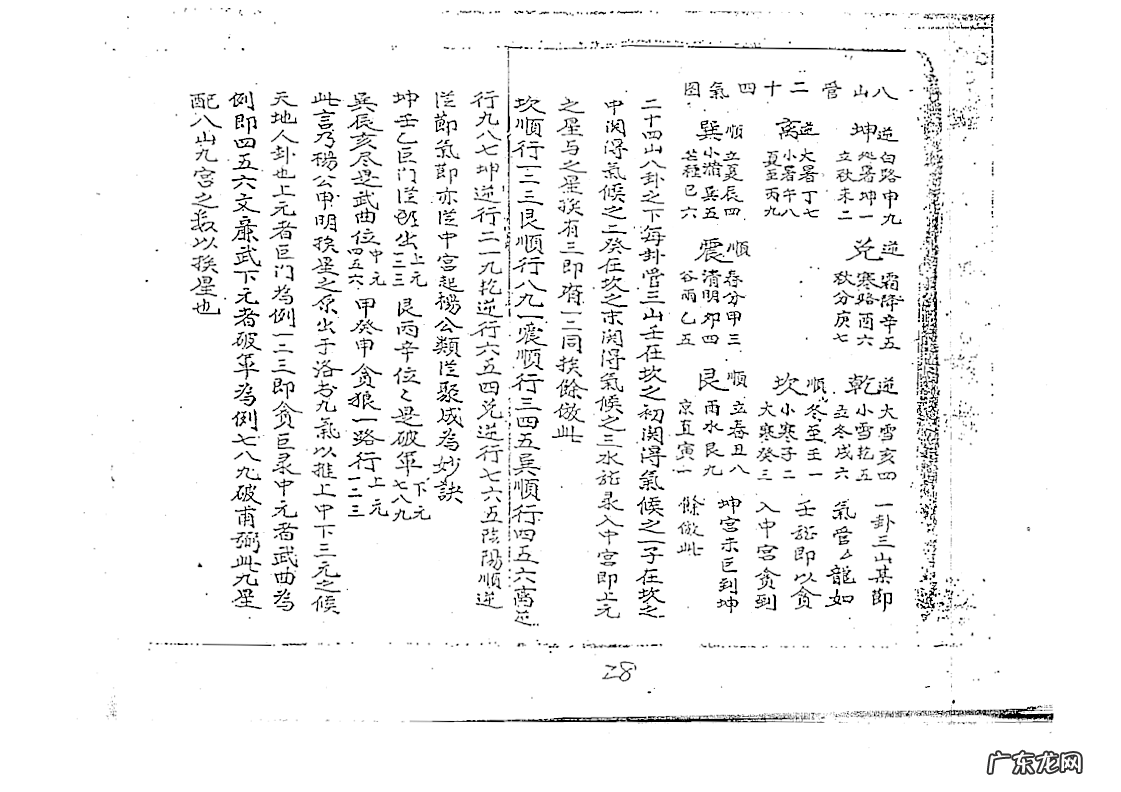 八山管二十四氣图
坤逆 白路申九 处暑坤一 立秋未二
兌逆 霜降辛五 寒路酉六 秋分庚七
乾逆 大雪亥四 小雪乾五 立冬戌六
離逆 大暑丁七 小暑午八 夏至丙九
坎順 冬至壬一 小寒子二 大寒癸三
巽順 立夏辰四 小满巽五 芒種巳六
震順 春分甲三 清明卯四 谷雨乙五
艮順 立春丑八 雨水艮九 京直寅一
一卦三山某節
氣管△龍如
壬龍即以貪
入中宮貪到
坤宮未巨到坤
餘倣此
二十四山八卦之下每卦管三山壬在坎之初関得氣候之一子在坎之
中関得氣候之二癸在坎之末関得氣候之三水龍录入中宮即上元
之星与之星挨有三即有一二同挨餘倣此
坎順行一二三艮順行八九一震順行三四五巽順行四五六离逆
行九八七坤逆行二一九乾逆行六五四兑逆行七六五陰陽順逆
從節氣即亦從中宮起楊公類從聚成為妙訣
坤壬乙巨门從頭出上元一二三艮丙辛位〻是破軍下元七八九
巽辰亥尽是武曲位中元四五六甲癸申貪狼一路行上元一二三
此言乃楊公甲明挨星之原出于洛书九氣以推上中下三元之候
天地人卦也上元者巨门為例一二三即貪巨录中元者武曲為
例即四五六文廉武下元者破軍為例七八九破甫弼此九星
配八山九宮之爻以挨星也
28
广东龙网